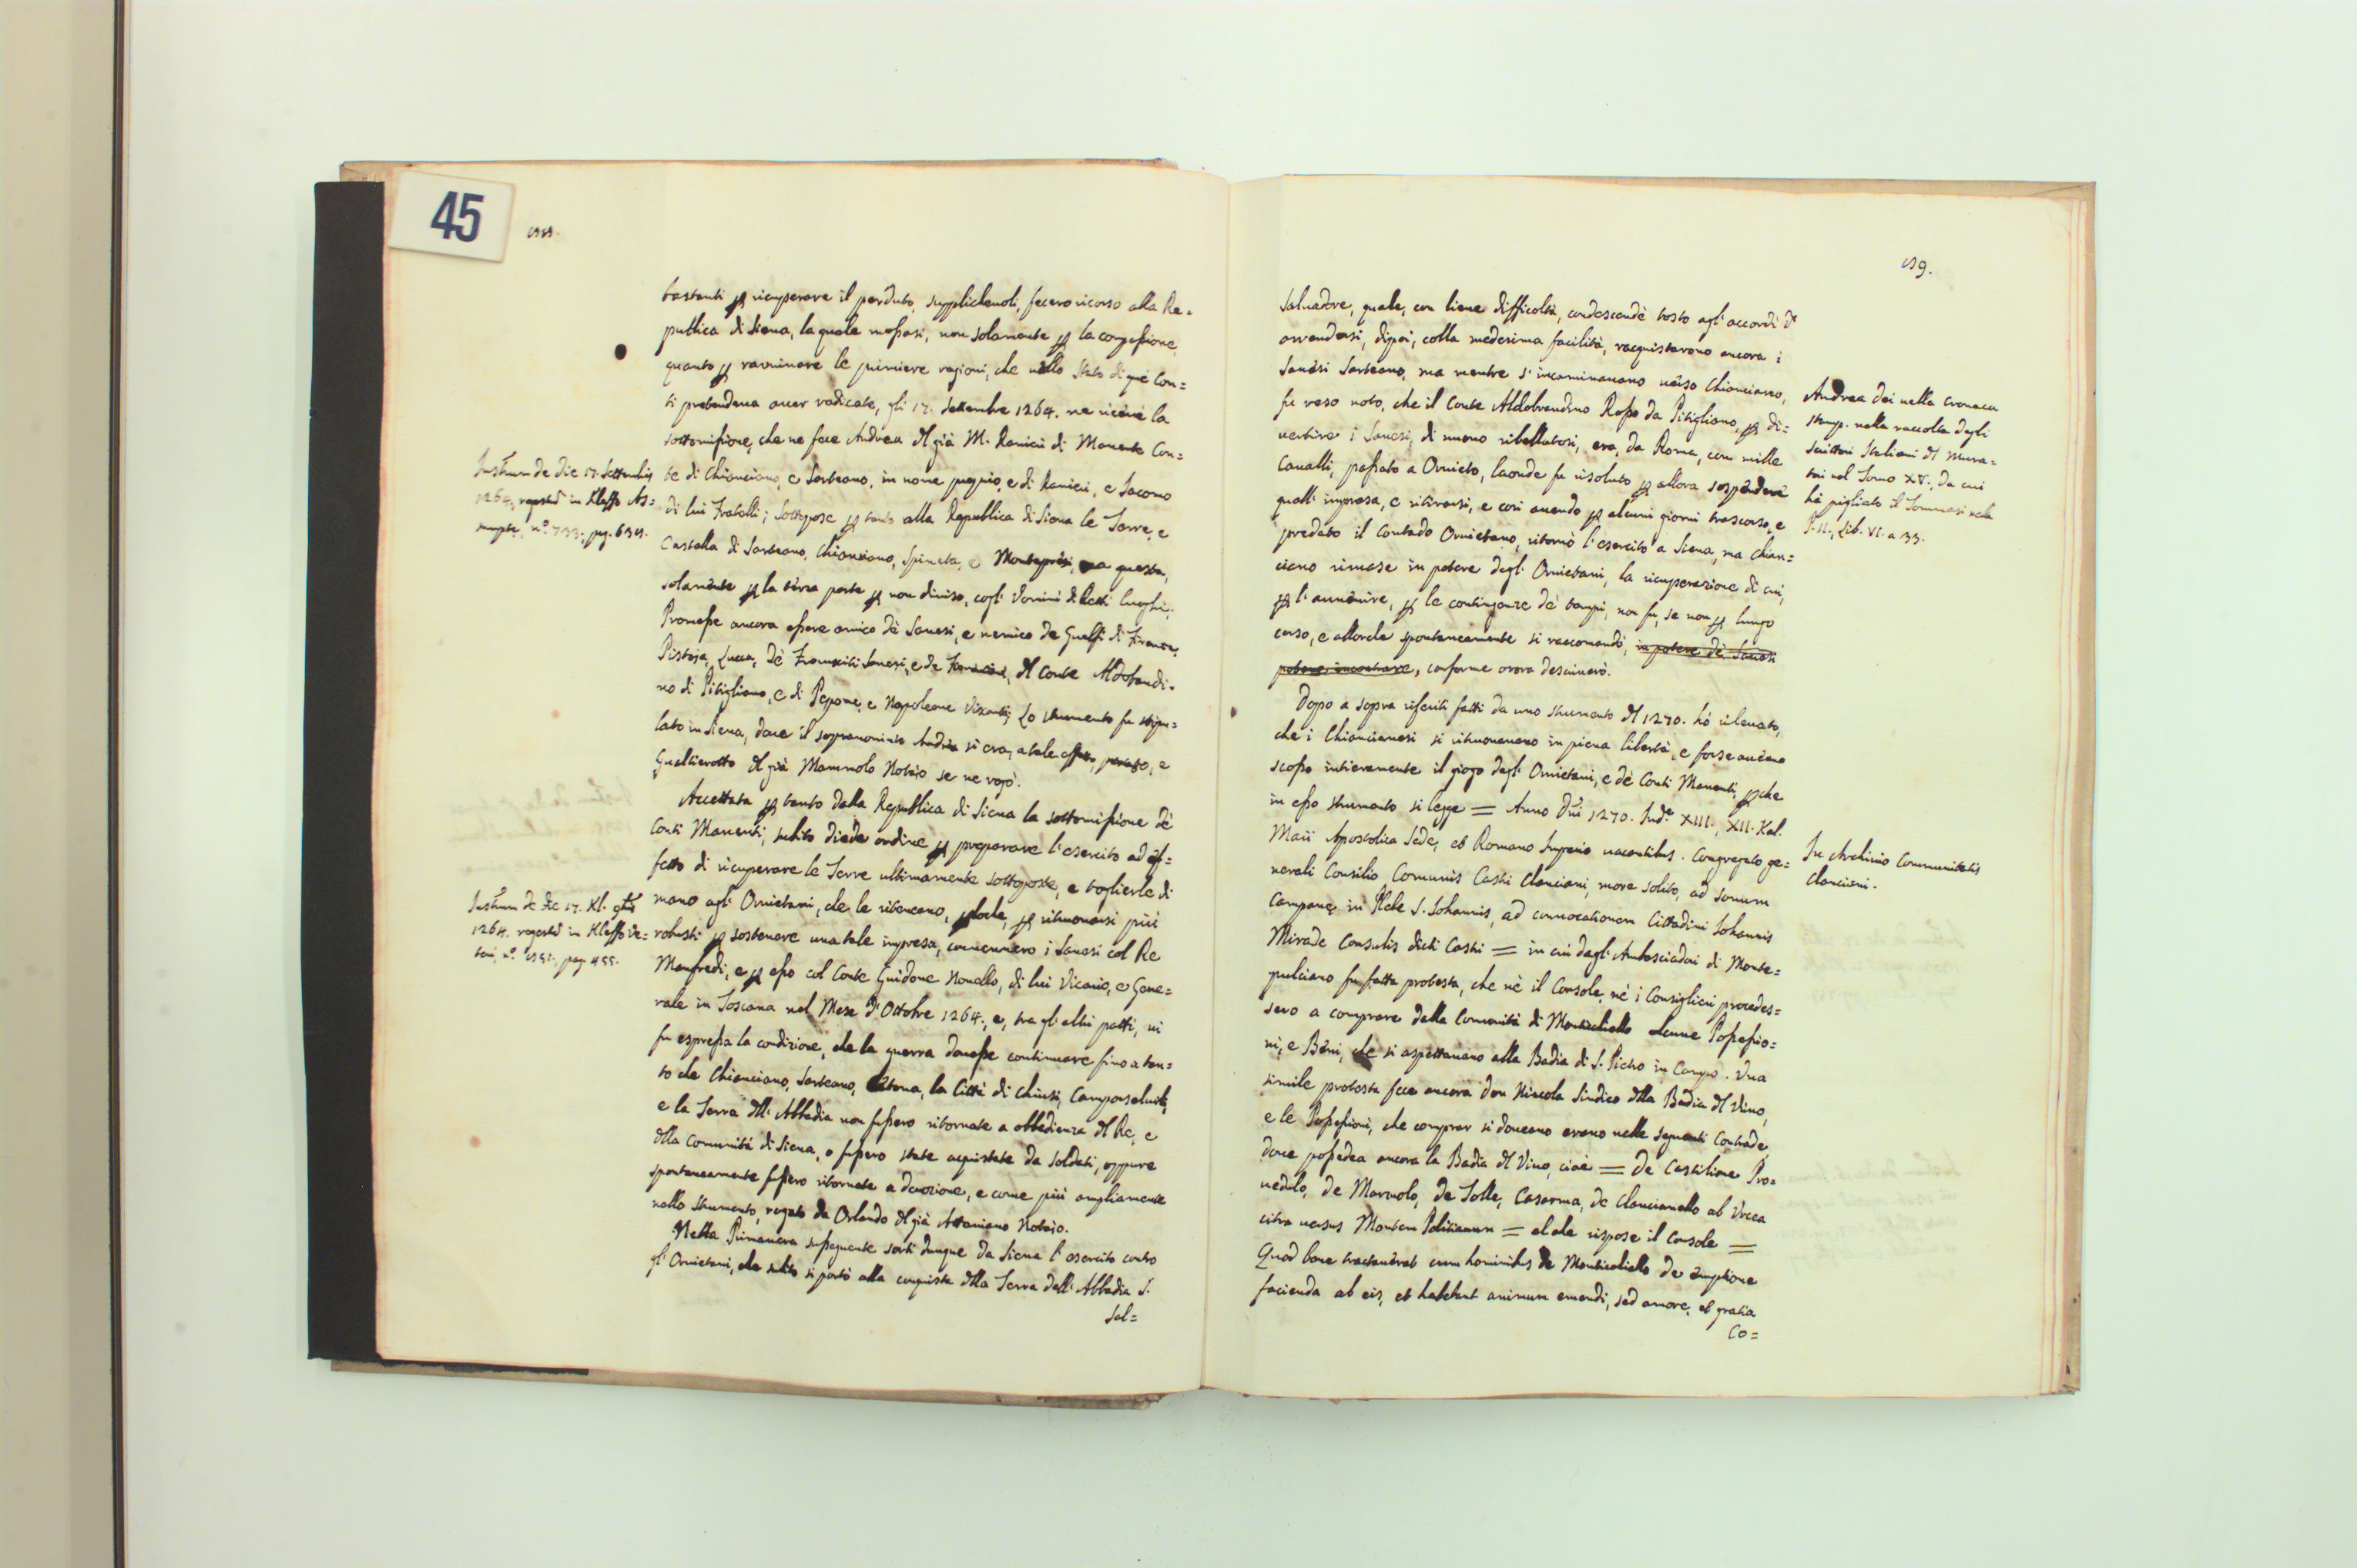 45
bastanti per ricuperare il perduto, supplichevoli, fecero ricorso alla Re=
publica di Siena, la quale mossasi, non solamente per la compassione,
quanto per ravvivare le primiere ragioni, che nello Stato di què Con=
ti pretendeva aver radicate, gli 17. Settembre 1264. ne ricevè la
sottomissione, che ne fece Andrea del già M. Ranieri di Manente Con=
te di Chianciano, e Sarteano, in nome proprio, e di Ranieri, e Jacomo
di lui Fratelli; Sottopose per tanto alla Republica di Siena le Terre, e
Castella di Sarteano, Chianciano, Spineta, e ma questa,
solamente per la terza parte per non diviso, cogl' Uomini di detti luoghi;
Promesse ancora essere amico dè Sanesi, e nemico de Guelfi di Firenze,
Pistoja, Lucca, dè Fuorusciti Sanesi, e de del Conte Aldobrandi=
no di Pitigliano, e di Pepone, e Napoleone Visconti; Lo strumento fu stipu=
lato in Siena, dove il sopranominato Andrea si era, a tale effetto, portato, e
Gualtierotto del già Mannolo Notajo se ne rogò.
Accettata per tanto dalla Republica di Siena la sottomissione dè
Conti Manenti, subito diede ordine per preparare l'esercito ad ef=
fetto di ricuperare le Terre ultimamente sottoposte, e toglierle di
mano agl' Orvietani, che le ritenevano, per loche, per ritrovarsi più
robusti per sostenere una tale impresa, convennero i Sanesi col Re
Manfredi, e per esso col Conte Guidone Novello, di lui Vicario, e Gene=
rale in Toscana nel Mese d'Ottobre 1264., e, tra gl'altri patti, vi
fu espressa la condizione, che la guerra dovesse continuare fino a tan=
to che Chianciano, Sarteano, Cetona, la Città di Chiusi, Camporselvoli,
e la Terra dell' Abbadia non fussero ritornate a obbedienza del Re, e
della Comunità di Siena, o fussero state acquistate da Soldati, oppure
spontaneamente fussero ritornate a devozione, e come più ampliamente
nello strumento, rogato da Orlando del già Notajo.
Nella Primavera susseguente sortì dunque da Siena l'esercito contro
gl' Orvietani, che subito si portò alla conquista della Terra dell' Abbadia S.
Sal=
Instrum de die 17. Settembris
1264, in Kleffo As=
n.° 733, pag. 634.
Instrum de die 17. Kl.
1264. in Kleffo ve=
teri, n.° pag. 455.
59.
Salvadore, quale, con lieve difficoltà, condescendè tosto agl' accordi d'
arrendersi, dipoi, colla medesima facilità, racquistarono ancora i
Sanesi Sarteano, ma mentre s'incaminavano verso Chianciano,
fu reso noto, che il Conte Aldobrandino Rosso da Pitigliano, per di=
vertire i Sanesi, di nuovo ribellatosi, era, da Roma, con mille
Cavalli, passato a Orvieto, laonde fu risoluto per allora sospendere
quall' impresa, e ritirarsi, e così avendo per alcuni giorni trascorso, e
predato il Contado Orvietano, ritornò l'esercito a Siena, ma Chian=
ciano rimase in potere degl' Orvietani, la ricuperazione di cui,
per l'avvenire, per le contingenze dè tempi, non fu, se non per lungo
corso, e allorche spontaneamente si raccomandò, in potere dè Sanesi
conforme orora descriverò.
Dopo a sopra riferiti fatti da uno strumento del 1270. hò rilevato,
che i Chiancianesi si ritrovavano in piena libertà, e forse avevano
scosso intieramente il giogo degl' Orvietani, e dè Conti Manenti, perche
in esso strumento si legge = Anno Dni 1270. Inde. XIII., XII. Kal.
Maii Apostolica Sede, et Romano Imperio vacantibus. Congregato ge=
nerali Consilio Comunis Castri Clanciani, more solito, ad sonum
Campane, in Plebe S. Johannis, ad convocationem Cittadini Johannis
Mirade Consulis dicti Castri = in cui dagl' Ambasciadori di Monte=
pulciano fu fatta protesta, che nè il Console, nè i Consiglieri procedes=
sero a comprare dalla Comunità di Monticchiello alcune Possessio=
ni, e Beni, che si aspettavano alla Badia di S. Pietro in Campo. Una
simile protesta fece ancora Don Niccola Sindico della Badia del Vivo,
e le Possessioni, che comprar si dovevano erano nelle seguenti Contrade,
dove possedea ancora la Badia del Vivo, cioè = De Castilione Pro=
nedulo, de Marnolo, de Tolle, Casarma, de Clancianello ab Urcea
citra versus Montem Politianum = al che rispose il Console =
Quod bene tractaverat cum hominibus de Monticchiello de emptione
facienda ab eis, et habebat animum emendi, sed amore, et gratia
Co=
Andrea Dei nella Cronaca
stamp. nella raccolta degli
Scrittori Italiani del Mura=
tori nel Tomo XV., da cui
hà pigliato il Tommasi nela
P. II., Lib. VI. a 33.
In Archivio Communitatis
Clanciani.